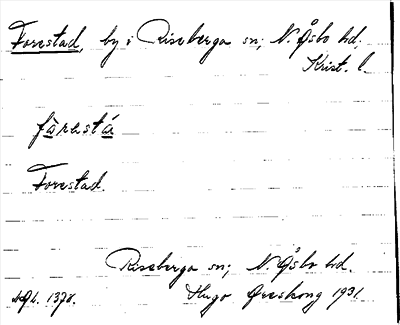 Forestad, by i Riseberga sn; N. Åsbo hd;
Krist. l.
fårestá
Forestad.
Riseberga sn; N. Åsbo hd.
Hugo Areskoug 1931.
1378.